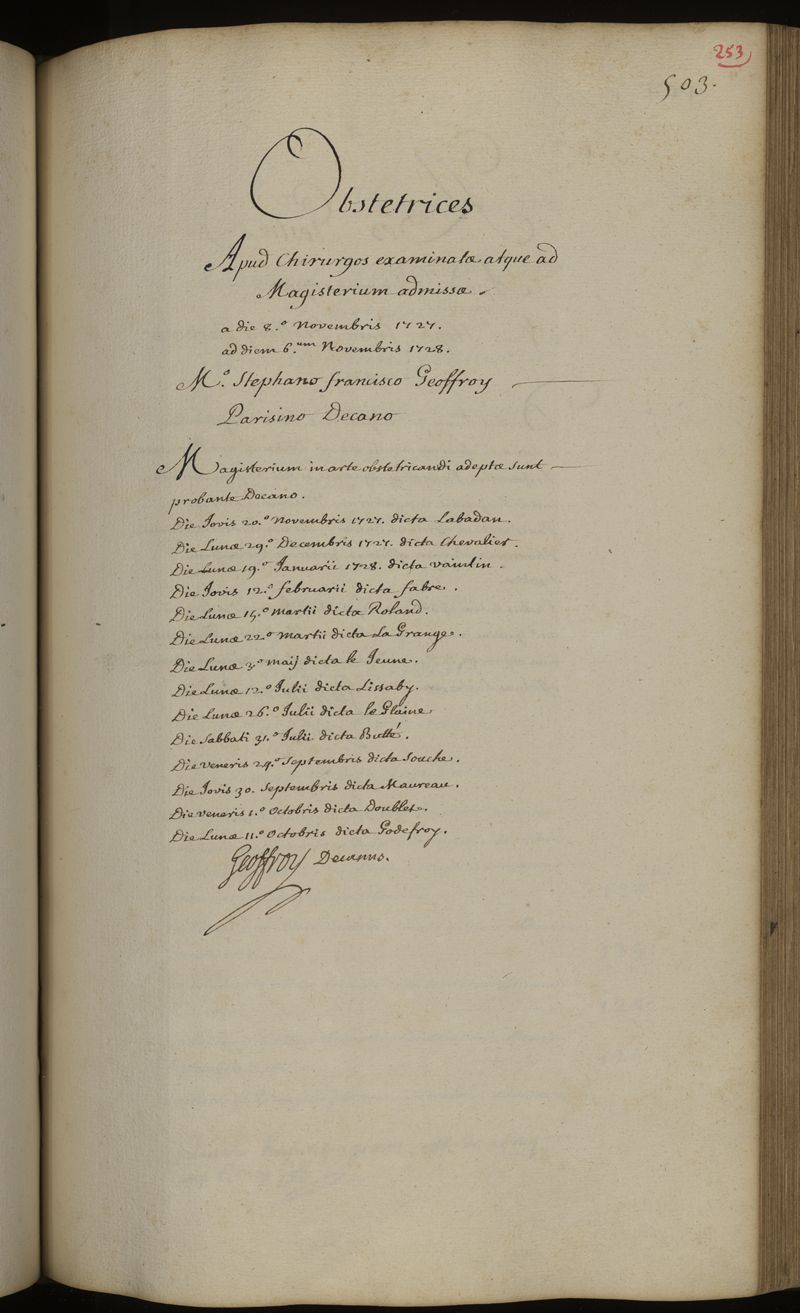 253
503.
Obstetrices
Apud Chirurgos examinatæ atque ad
Magisterium admissæ
a die 8.º Novembris 1727.
ad diem 6.um Novembris 1728.
M.º Stephano francisco Geoffroy
Parisino Decano
Magisterium in arte obstetricandi adeptæ sunt
probante Decano.
Die Jovis 20.º Novembris 1727. dicta Labadan.
Die Lunæ 29.º Decembris 1727. dicta Chevalier.
Die Lunæ 19.º Januarii 1728. dicta vaintin.
Die Jovis 12.º februarii dicta fabre.
Die Lunæ 15.º Martii dicta Roland.
Die Lunæ 22.º Martii dicta La Grange.
Die Lunæ 3.º maij dicta le Jeune.
Die Lunæ 12.º Julii dicta Lissaby.
Die Lunæ 26.º Julii dicta le Plaine.
Die Sabbati 31.º Julii dicta Butté.
Die veneris 24.º Septembris dicta Souche.
Die Jovis 30. Septembris dicta Maureau.
Die veneris 1.º Octobris dicta Doublet.
Die Lunæ 11.º Octobris dicta Godefroy.
Geoffroy Decanus.